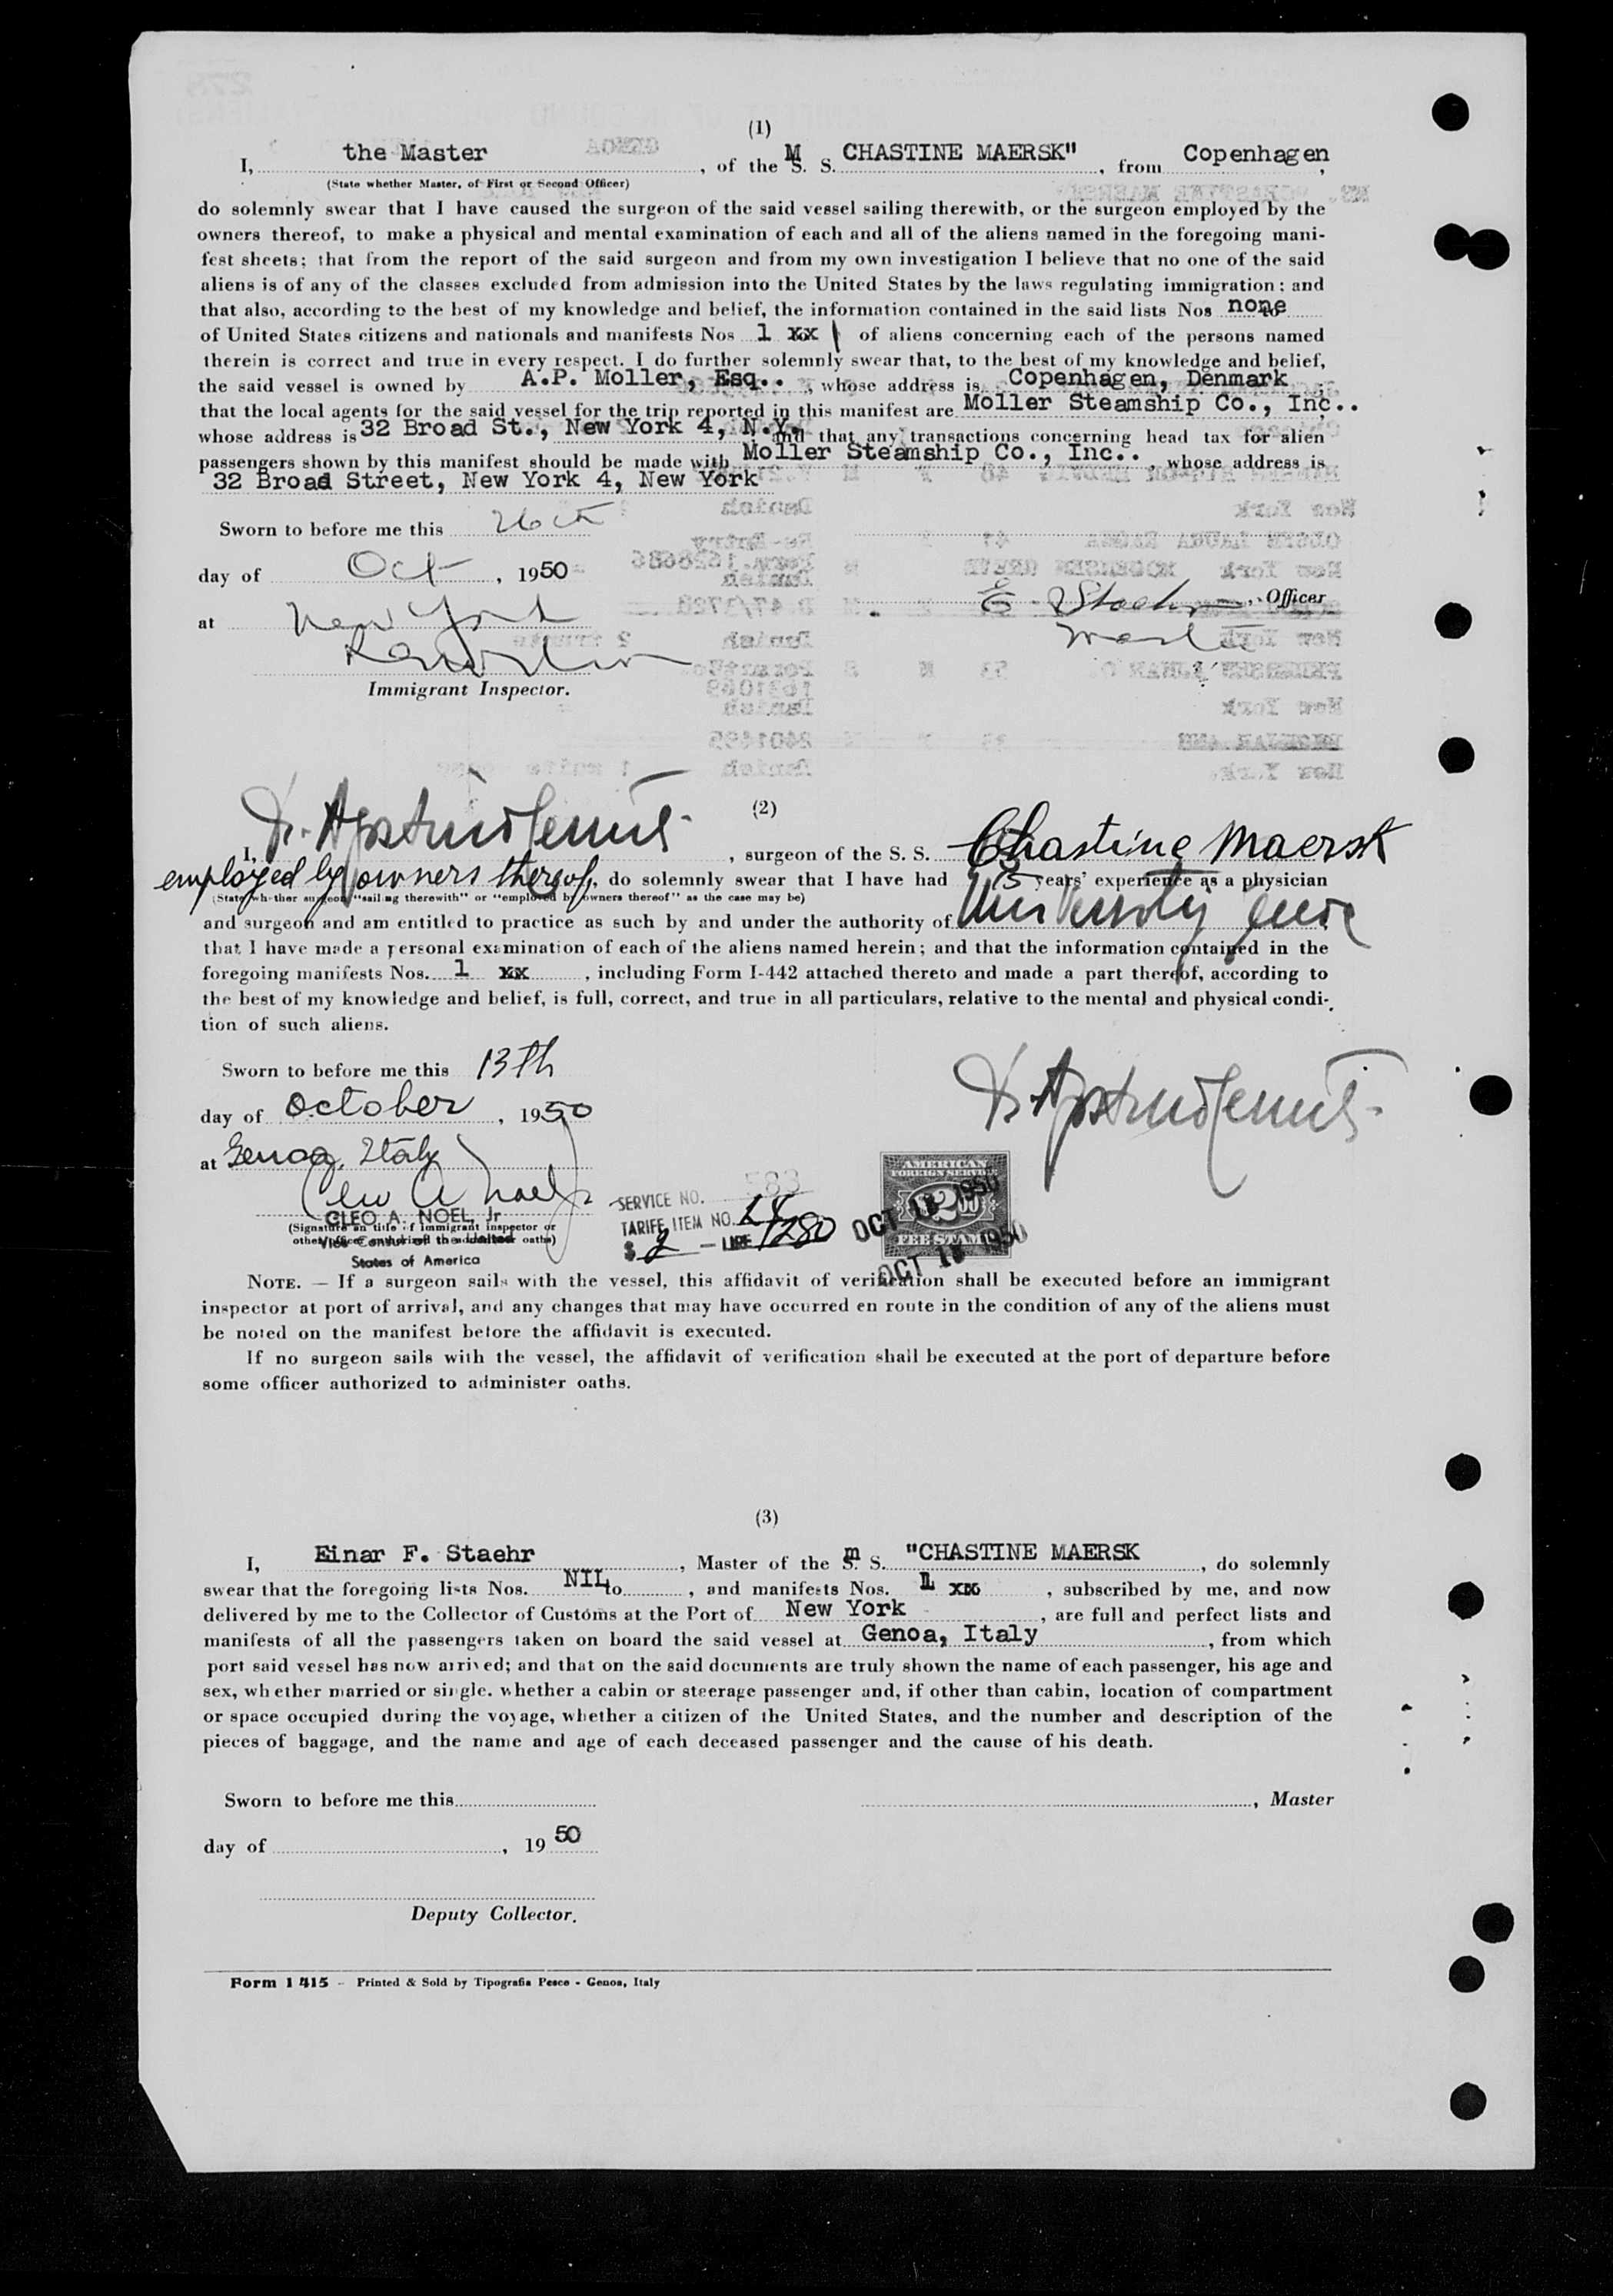 (1)
I, the Master, of the M S. S. CHASTINE MAERSK", from Copenhagen,
(State whether Master, of First or Second Officer)
do solemnly swear that I have caused the surgeon of the said vessel sailing therewith, or the surgeon employed by the
owners thereof, to make a physical and mental examination of each and all of the aliens named in the foregoing mani-
fest sheets; that from the report of the said surgeon and from my own investigation I believe that no one of the said
aliens is of any of the classes excluded from admission into the United States by the laws regulating immigration; and
that also, according to the best of my knowledge and belief, the information contained in the said lists Nos none
of United States citizens and nationals and manifests Nos 1 xx of aliens concerning each of the persons named
therein is correct and true in every respect. I do further solemnly swear that, to the best of my knowledge and belief,
the said vessel is owned by A.P. Moller, Esq.., whose address is Copenhagen, Denmark;
that the local agents for the said vessel for the trip reported in this manifest are Moller Steamship Co., Inc..
whose address is 32 Broad St., New York 4, N.Y. and that any transactions concerning head tax for alien
passengers shown by this manifest should be made with Moller Steamship Co., Inc.., whose address is
32 Broad Street, New York 4, New York
Sworn to before me this 26th
day of Oct, 1950
E. Staehr, Officer
at New York
Master
Immigrant Inspector.
(2)
I, Dr., surgeon of the S. S. Chastine Maersk
employed by owners thereof, do solemnly swear that I have had 15 years' experience as a physician
(State whether surgeon "sailing therewith" or "employed by owners thereof" as the case may be)
and surgeon and am entitled to practice as such by and under the authority of University
that I have made a personal examination of each of the aliens named herein; and that the information contained in the
foregoing manifests Nos. 1 xx, including Form I-442 attached thereto and made a part thereof, according to
the best of my knowledge and belief, is full, correct, and true in all particulars, relative to the mental and physical condi-
tion of such aliens.
Sworn to before me this 13th
day of October, 1950
at Genoa, Italy
Cleo A Noel Jr
CLEO A. NOEL, Jr
(Signature an title of immigrant inspector or
other officer authorized to administer oaths)
Vice Consul of the United
States of America
SERVICE NO. 583
TARIFF ITEM NO. 
$ 2 — LIRE 1280
AMERICAN
FOREIGN SERVICE
$2.00
FEE STAMP
OCT 13 1950
OCT 13 1950
NOTE. — If a surgeon sails with the vessel, this affidavit of verification shall be executed before an immigrant
inspector at port of arrival, and any changes that may have occurred en route in the condition of any of the aliens must
be noted on the manifest before the affidavit is executed.
If no surgeon sails with the vessel, the affidavit of verification shall be executed at the port of departure before
some officer authorized to administer oaths.
(3)
I, Einar F. Staehr, Master of the m S. S. "CHASTINE MAERSK, do solemnly
swear that the foregoing lists Nos. NIL to, and manifests Nos. 1 xx, subscribed by me, and now
delivered by me to the Collector of Customs at the Port of New York, are full and perfect lists and
manifests of all the passengers taken on board the said vessel at Genoa, Italy, from which
port said vessel has now arrived; and that on the said documents are truly shown the name of each passenger, his age and
sex, whether married or single. whether a cabin or steerage passenger and, if other than cabin, location of compartment
or space occupied during the voyage, whether a citizen of the United States, and the number and description of the
pieces of baggage, and the name and age of each deceased passenger and the cause of his death.
Sworn to before me this
, Master
day of, 1950
Deputy Collector.
Form I 415 - Printed & Sold by Tipografia Pesce - Genoa, Italy